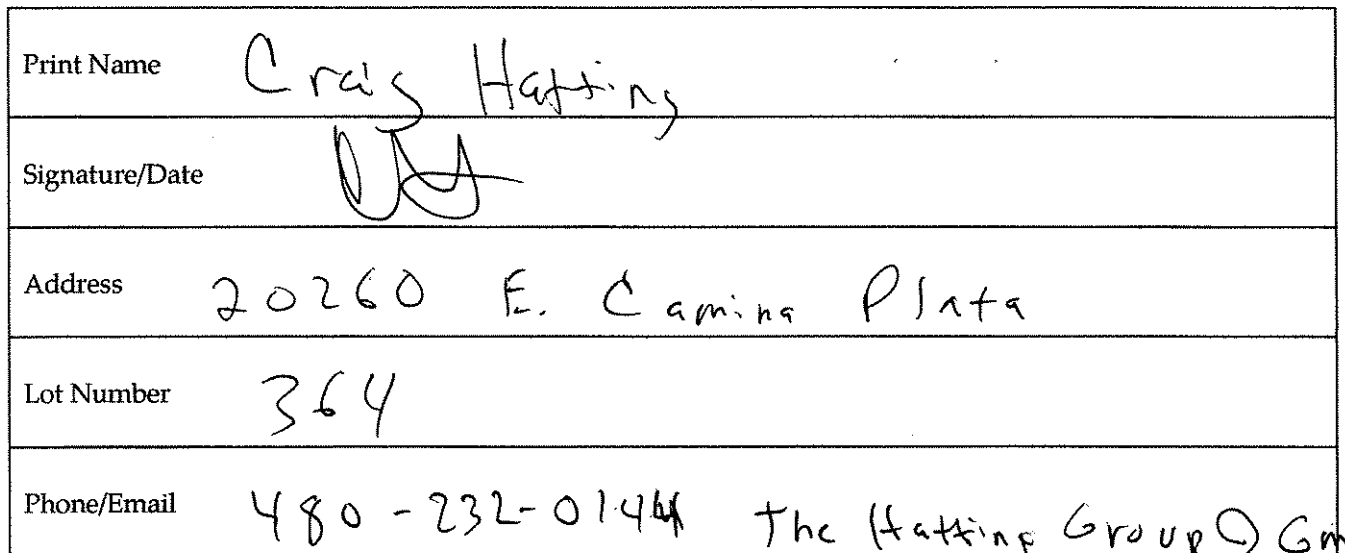 Print Name Craig Hatting
Signature/Date
Address 20260 E. Camina Plata
Lot Number 364
Phone/Email 480-232-0144 The Hatting Group@Gm